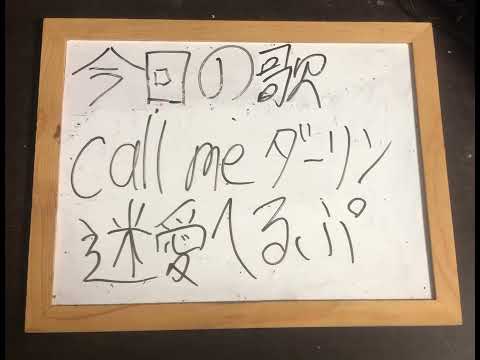 今回の歌
call me ダーリン
迷愛へるぷ